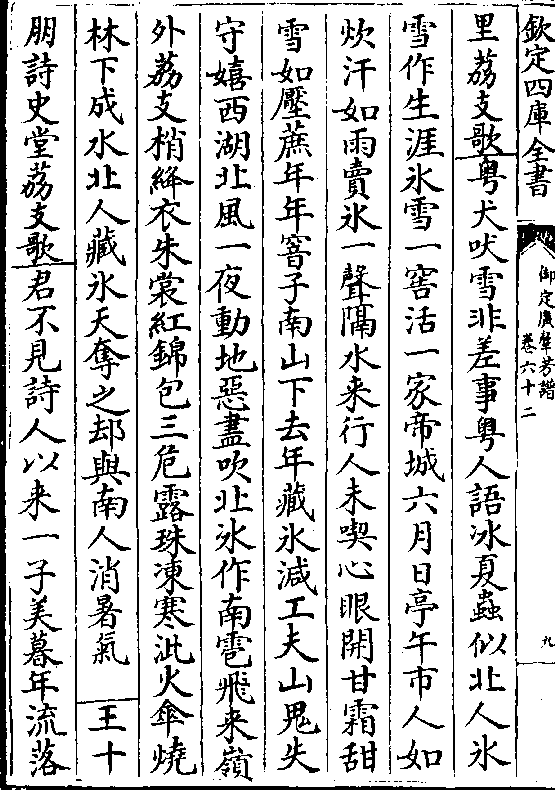 欽定四庫全書
御定廣羣芳譜
卷六十二
九
里荔支歌粤犬吠雪非差事粤人語冰夏蟲似北人氷
雪作生涯氷雪一窖活一家帝城六月日亭午市人如
炊汗如雨賣氷一聲隔水来行人未喫心眼開甘霜甜
雪如壓蔗年年窖子南山下去年藏氷減工夫山鬼失
守嬉西湖北風一夜動地惡盡吹北氷作南雹飛来嶺
外荔支梢絳衣朱裳紅錦包三危露珠凍寒泚火傘燒
林下成水北人藏氷天奪之却與南人消暑氣　王十
朋詩史堂荔支歌君不見詩人以来一子美暮年流落